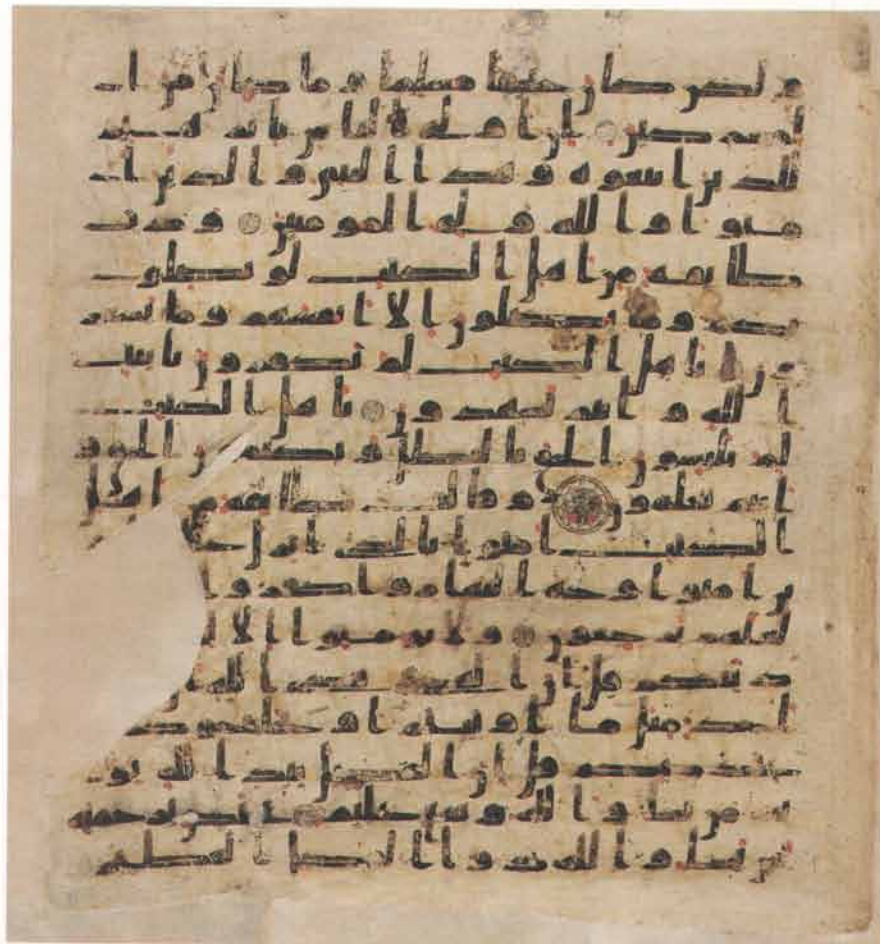 ولكن كان حنيفا مسلما وما كان من ا
لمشركين ان اولى الناس بابرهيم
للذين اتبعوه وهذا النبى والذين ا
منوا والله ولى المومنين ودت
طائفة من اهل الكتب لو يضلو
نكم وما يضلون الا انفسهم وما يشعر
ون ياهل الكتب لم تكفرون بايت
الله وانتم تشهدون ياهل الكتب
لم تلبسون الحق بالبطل وتكتمون الحق و
انتم تعلمون وقالت طائفة من اهل
الكتب امنوا بالذى انزل
ين امنوا وجه النهار واكفروا
لعلهم يرجعون ولا تومنوا الا
دينكم قل ان الهدى هدى الله
احد مثل ما اوتيتم او يحاجوكم
عند ربكم قل ان الفضل بيد الله يو
تيه من يشا والله وسع عليم يختص برحمته
من يشا والله ذو الفضل العظيم